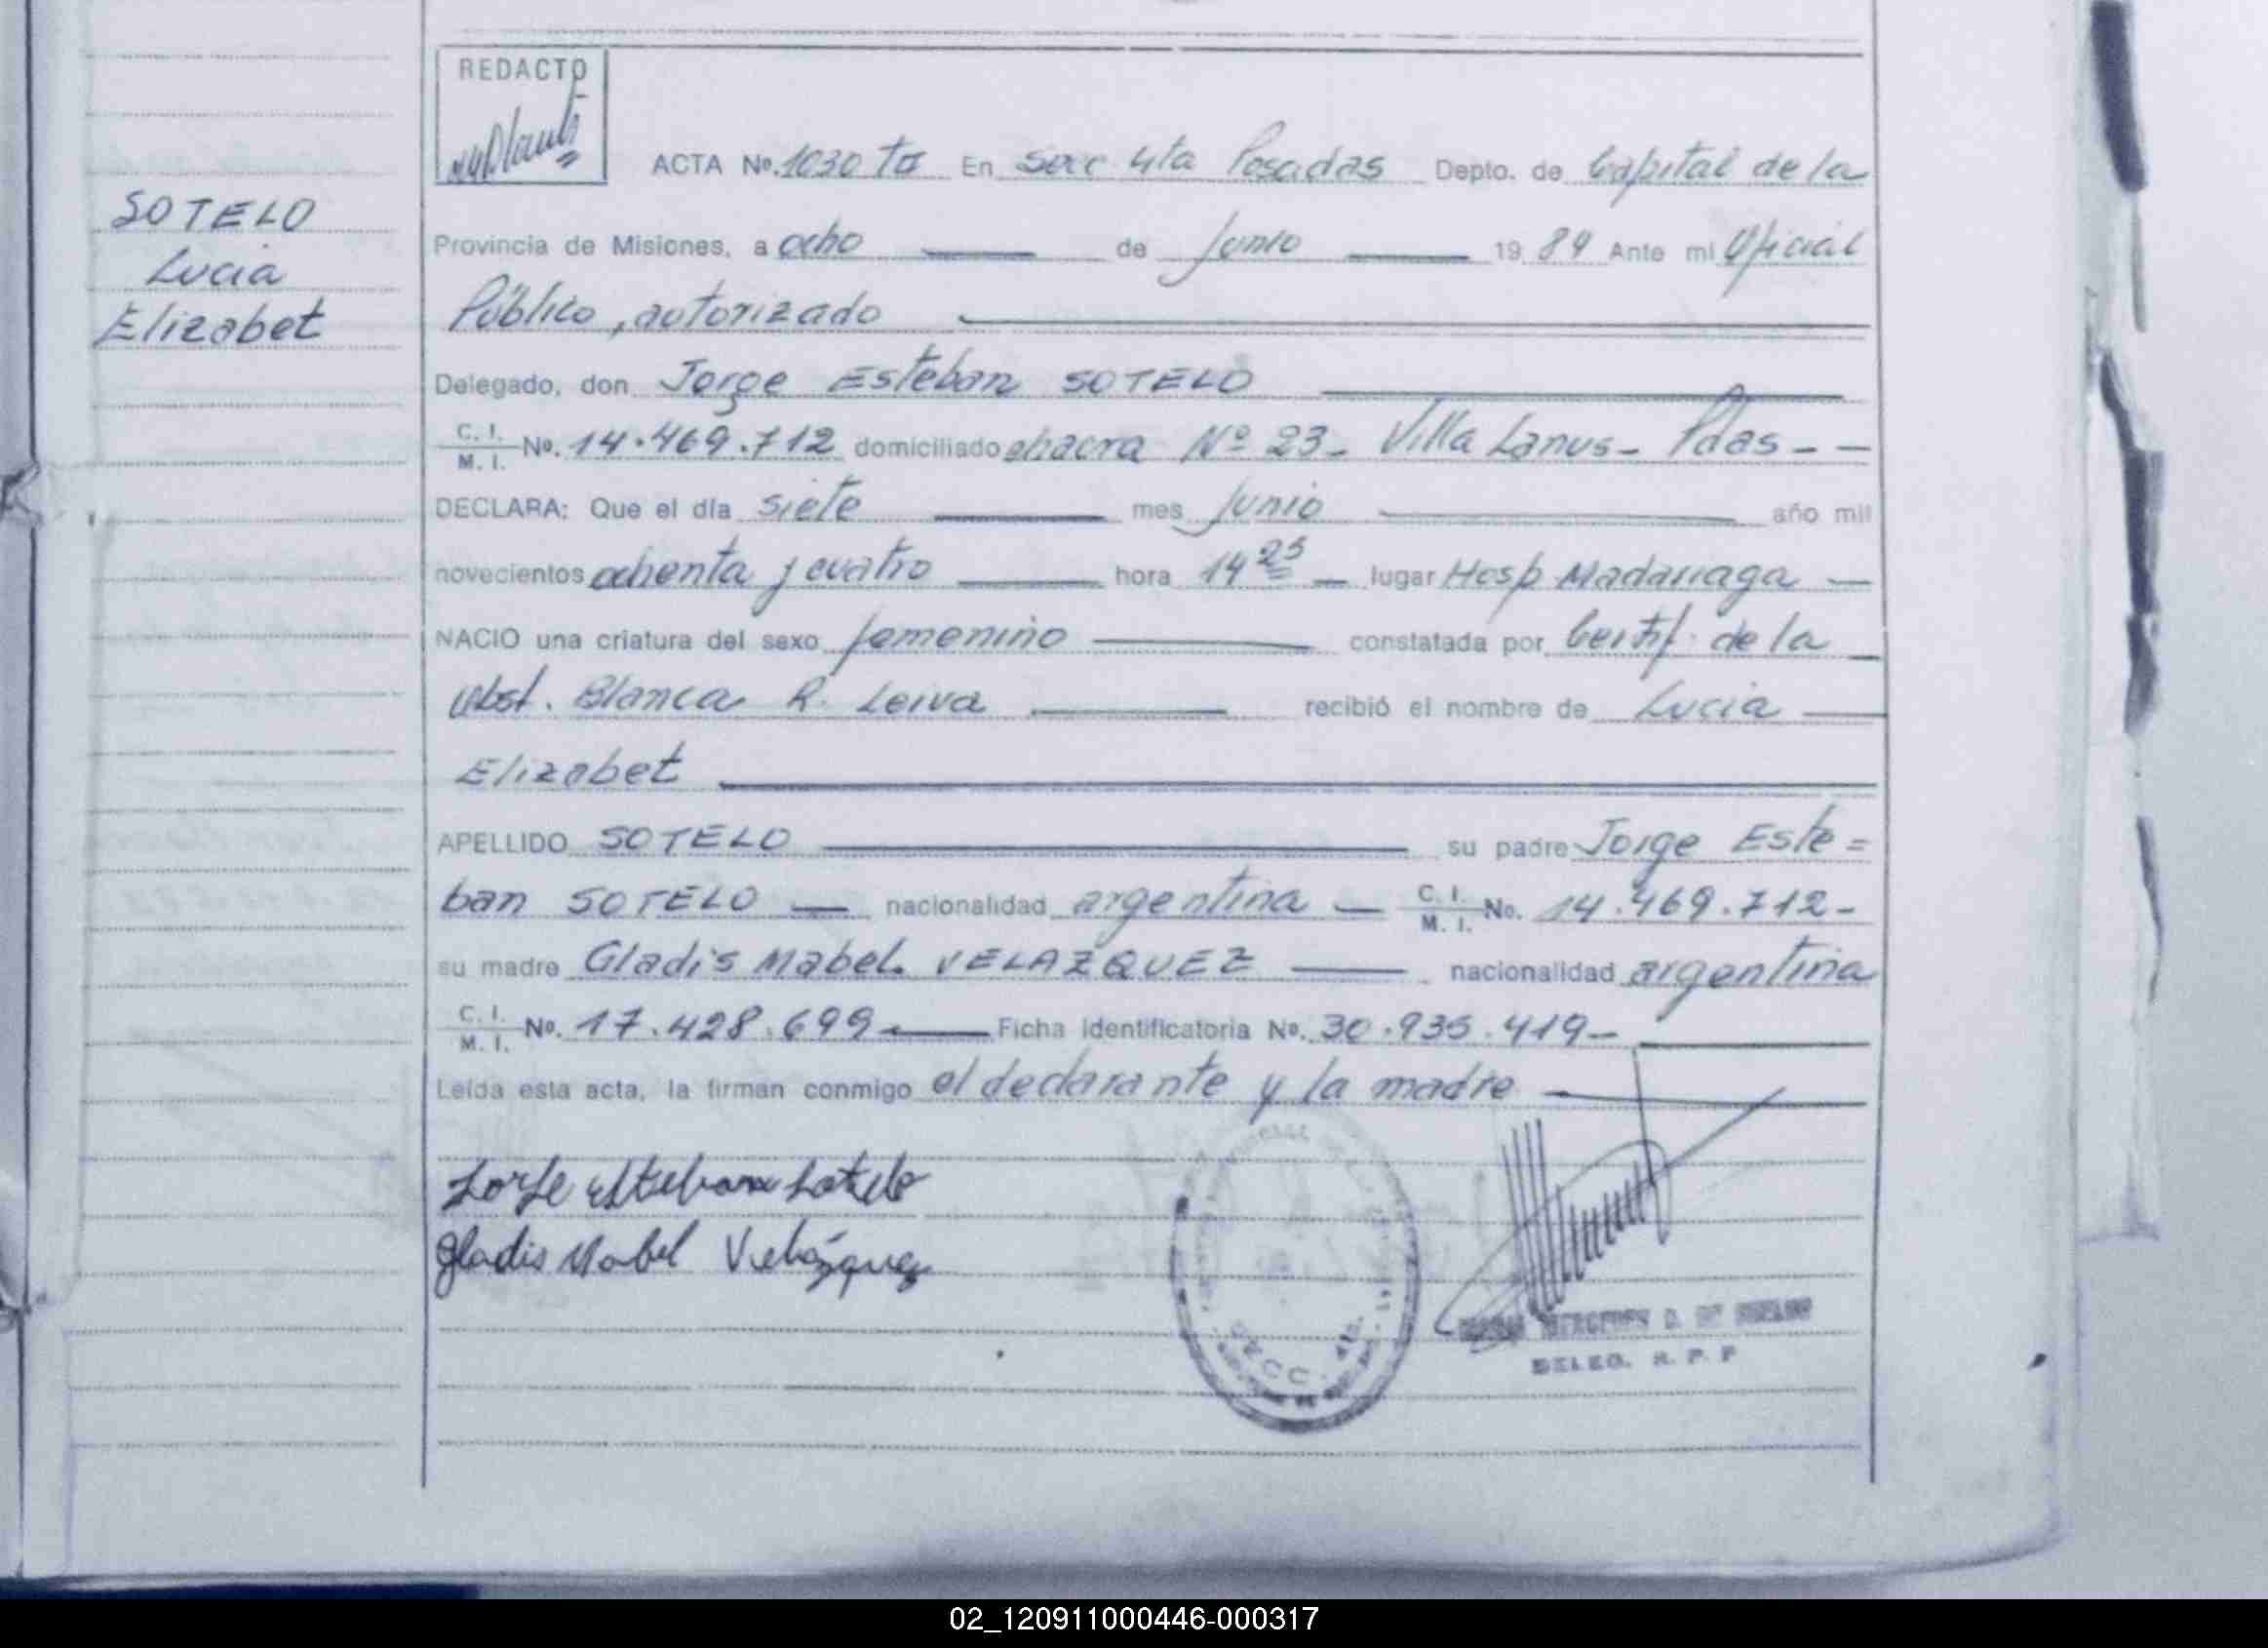 REDACTO
ACTA Nº. 1030 Tº En Secc 4ta Posadas Depto. de Capital de la
SOTELO
Lucia
Elizabet
Provincia de Misiones, a ocho de Junio 1984 Ante mi Oficial
Público, autorizado
Delegado, don Jorge Esteban SOTELO
C. I. M. I. Nº. 14.469.712 domiciliado chacra Nº 23- Villa Lanus- Pdas - -
DECLARA: Que el día siete mes Junio año mil
novecientos ochenta y cuatro hora 14 25 lugar Hosp Madariaga
NACIO una criatura del sexo femenino constatada por Certif. de la
Obst. Blanca R. Leiva recibió el nombre de Lucia
Elizabet
APELLIDO SOTELO su padre Jorge Este=
ban SOTELO nacionalidad argentina C. I. M. I. No. 14.469.712-
su madre Gladis Mabel. VELAZQUEZ nacionalidad argentina
C. I. M. I. Nº. 17.428.699 Ficha Identificatoria Nº. 30.935.419-
Leída esta acta, la firman conmigo el declarante y la madre
Jorge Esteban Sotelo
Gladis Mabel Velázquez
SECC. 4ta.
DELEG. R. P. P
02_120911000446-000317